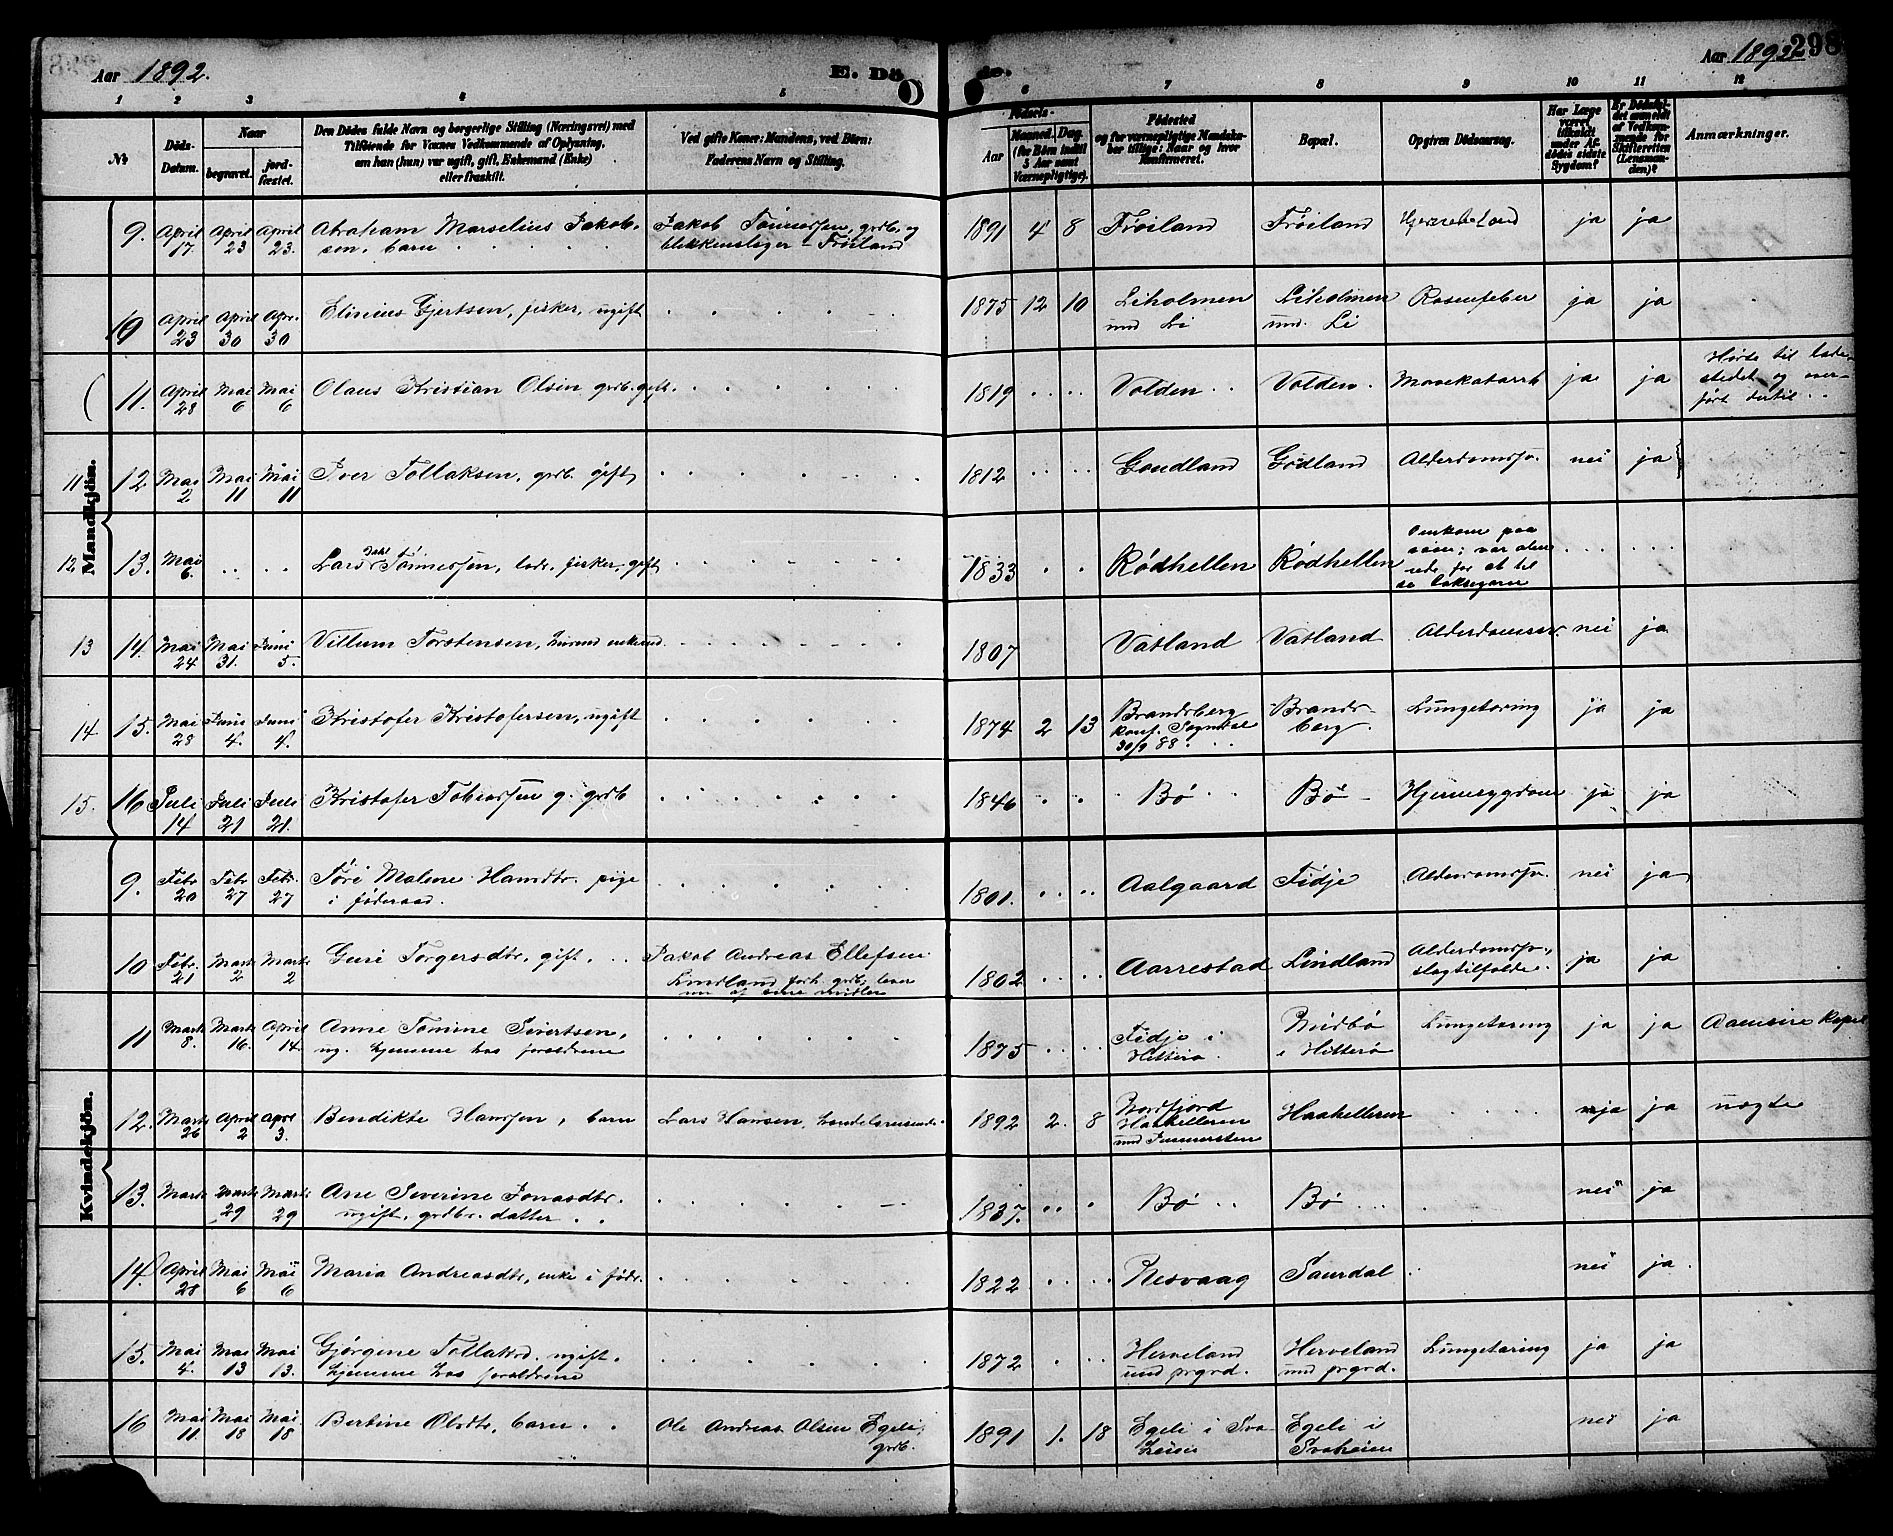 Aar 1892. E. Dö de. Aar 1892 298
1 2 3 4 5 6 7 8 9 10 11 12
No
Döds-Datum.
Naar
begravet.
jordfæstet.
Den Dödes fulde Navn og borgerlige Stilling (Næringsvei) med
Tilföiende for Voxnes Vedkommende af Oplysning,
om han (hun) var ugift, gift, Enkemand (Enke)
eller fraskilt.
Ved gifte Koner: Mandens, ved Börn:
Faderens Navn og Stilling.
Födsels-
Aar
Maaned. Dag.
(for Börn indtil
5 Aar samt
Værnepligtige).
Födested
og for værnepligtige Mandskaber tillige: Naar og hvor
konfirmeret.
Bopæl.
Opgiven Dödsaarsag.
Har Læge
været
tilkaldt
under Afdödes sidste
Sygdom?
Er Dödsfaldet anmeldt
af Vedkommende for
Skifteretten
(Lensmanden)?
Anmærkninger.
Mandkjön.
9. April 17. April 23 April 23. Abraham Marselius Jakobsen, barn Jakob Tönnessen, grdb. og blikkenslager - Frøiland 1891 4 8 Frøiland Frøiland ja ja
10 April 23 April 30 Apr. 30 Elinius Gjertsen, fisker, ugift 1875 12 10 Liholmen und Li Liholmen und. Li Rosenfeber ja ja
11. April 28 Mai 6 Mai 6 Olaus Kristian Olsen grdb. gift. 1819 Volden Volden. Mavekatarrh ja ja Hørte til ladestedet og overført dertil
11 12 Mai 2 Mai 11 Mai 11 Iver Tollaksen, grdb. gift 1812 Goudland Gödland Alderdomssv. nei ja
12 13. Mai 6. Lars Tönnessen, fisker, gift 1833 Rødhellen Rødhellen Omkom paa søen; var
13 14. Mai 24 Mai 31. Juni 5. Villum Torstensen, 1807 Vatland Vatland nei ja
14 15. Mai 28 Juni 4. Juni 4. Kristofer Kristofersen, ugift 1874 2 13 Brandsberg konf. Sogndal 30/9 88 Brandsberg. Lungetæring ja ja
15. 16 Juli 14 Juli 21 Juli 21. Kristofer Tobiassen g. grdb 1846 Bø Bø Hjernesygdom ja ja
Kvindekjön.
9. Febr. 20 Febr 27 Febr. 27 Malene Hansdtr. pige i føderaad. 1801. Aalgaard Fidje Alderdomssv. nei ja
10 Febr. 21 Marts 2 Marts 2 Guri Torgersdtr, gift, Jakob Andreas Ellefsen Lindland forh. grdb, lever nu af sine midler 1802 Aarrestad Lindland Alderdomssv., slagtilfælde. ja ja
11 Marts 8. Marts 16. April 14. Anne Tomine Sivertsen, ug. hjemme hos forældrene 1875 Fidje i Hitterø i Hitterø Lungetæring ja ja Aaensire Kapel
12. Marts 26 April 2 April 3. Bendikte Hanssen, barn Lars Hansen, handelsreisende 1892 2. 8 Haakelleren Haakelleren ja ja uægte
13. Marts Marts 29 Marts 29 Ane Severine Jonasdtr. ugift, grdbr. datter 1837. Bø Bø nei ja
14. April 28 Mai 6 Mai 6 Maria Andreasdtr, enke i född. 1822 Nesvaag Saurdal nei ja
15. Mai 4. Mai 13 Mai 13. Gjørgine Tollaksd. ugift. hjemme hos forældrene 1872 Herveland und prgrd. Herveland und prgrd. Lungetæring ja ja
16 Mai 11. Mai 18 Mai 18 Bertine Olsdtr, barn Ole Andreas Olsen Egeli, grdb. 1891 1. 18 Egeli i Svaheien Egeli i Svaheien nei ja